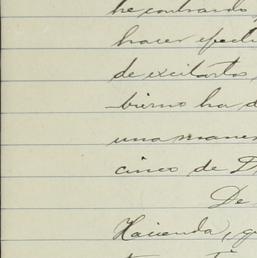 he contraido
hacer efecti
de excitarlos
bierno ha d
una maner
cinco de D
De
Hacienda, q